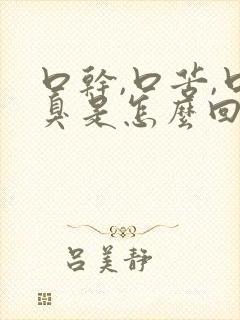 口幹,口苦,口
臭是怎麼回
呂美靜